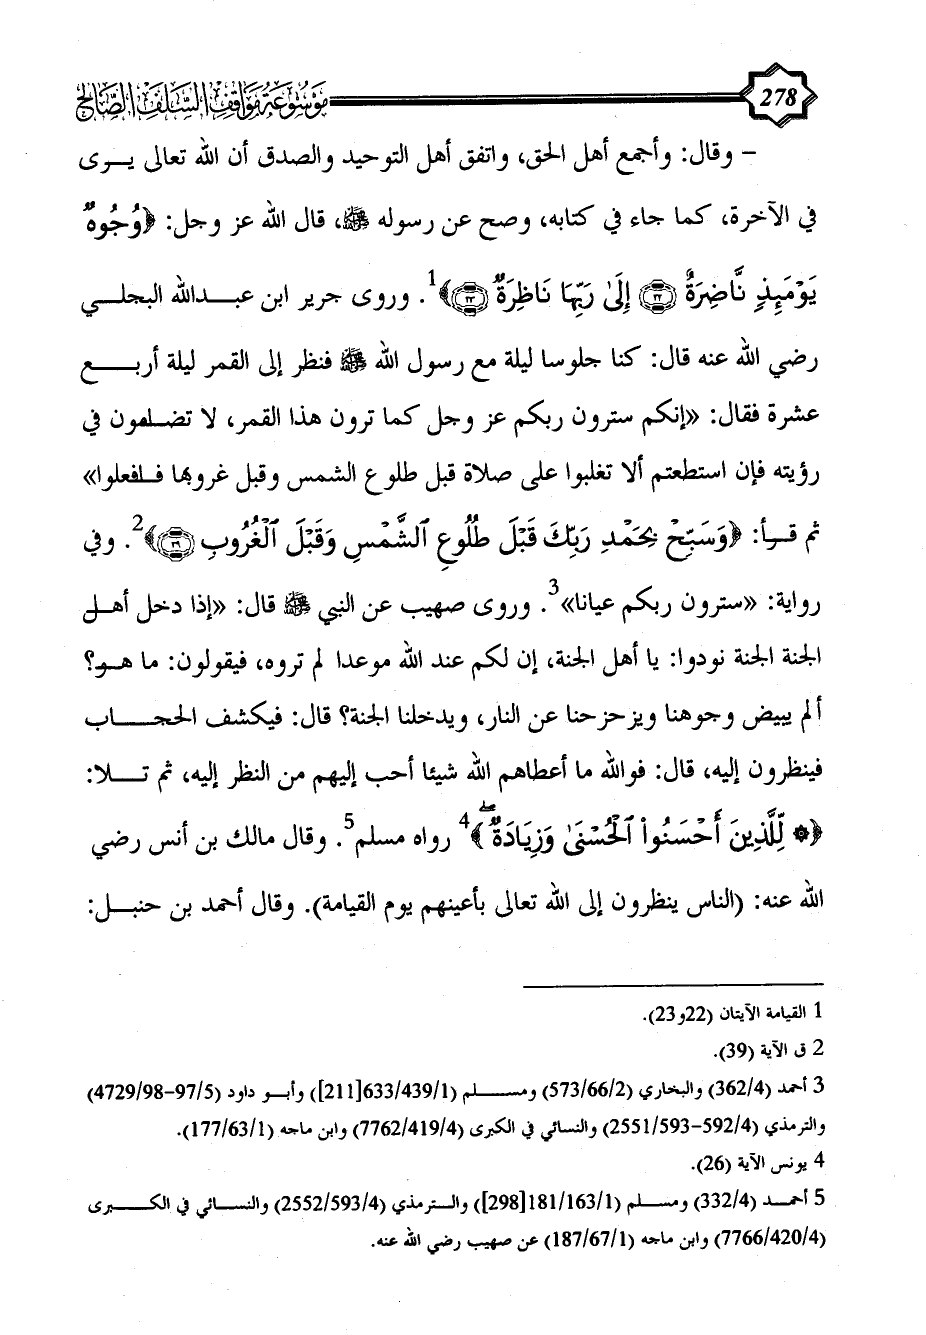 278 موسوعة مواقف السلف الصالح
- وقال: وأجمع أهل الحق، واتفق أهل التوحيد والصدق أن الله تعالى يــرى
في الآخرة، كما جاء في كتابه، وصح عن رسوله ﷺ، قال الله عز وجل: ﴿وُجُوهٌ
يَوْمَئِذٍ نَّاضِرَةٌ ﴿٢٢﴾ إِلَىٰ رَبِّهَا نَاظِرَةٌ ﴿٢٣﴾﴾1. وروى جرير ابن عبـدالله البجلـي
رضي الله عنه قال: كنا جلوسا ليلة مع رسول الله ﷺ فنظر إلى القمر ليلة أربـــع
عشرة فقال: «إنكم سترون ربكم عز وجل كما ترون هذا القمر، لا تضـامون في
رؤيته فإن استطعتم ألا تغلبوا على صلاة قبل طلوع الشمس وقبل غروبها فـافعلوا»
ثم قـرأ: ﴿وَسَبِّحْ بِحَمْدِ رَبِّكَ قَبْلَ طُلُوعِ ٱلشَّمْسِ وَقَبْلَ ٱلْغُرُوبِ ﴿٣٩﴾﴾2. وفي
رواية: «سترون ربكم عيانا»3. وروى صهيب عن النبي ﷺ قال: «إذا دخل أهـل
الجنة الجنة نودوا: يا أهل الجنة، إن لكم عند الله موعدا لم تروه، فيقولون: ما هـو؟
ألم يبيض وجوهنا ويزحزحنا عن النار، ويدخلنا الجنة؟ قال: فيكشف الحجــاب
فينظرون إليه، قال: فوالله ما أعطاهم الله شيئا أحب إليهم من النظر إليه، ثم تــلا:
﴿۞ لِّلَّذِينَ أَحْسَنُوا۟ ٱلْحُسْنَىٰ وَزِيَادَةٌ ۖ﴾4 رواه مسلم5. وقال مالك بن أنس رضي
الله عنه: (الناس ينظرون إلى الله تعالى بأعينهم يوم القيامة). وقال أحمد بن حنبـل:
1 القيامة الآيتان (22و23).
2 ق الآية (39).
3 أحمد (362/4) والبخاري (573/66/2) ومســلم (633/439/1[211]) وأبـو داود (4729/98-97/5)
والترمذي (2551/593-592/4) والنسائي في الكبرى (7762/419/4) وابن ماجه (177/63/1).
4 يونس الآية (26).
5 أحمـد (332/4) ومسـلم (181/163/1[298]) والـترمذي (2552/593/4) والنسـائي في الكـبرى
(7766/420/4) وابن ماجه (187/67/1) عن صهيب رضي الله عنه.